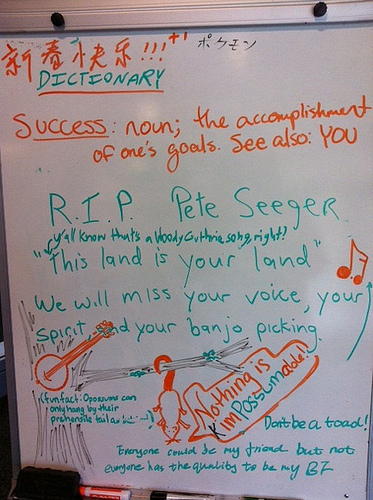 新春快乐!!! +1 ポケモン
DICTIONARY
Success: noun; the accomplishment
of one's goals. See also: YOU
R.I.P. Pete Seeger
y'all know that's a Woody Guthrie song, right?
"This land is your land"
We will miss your voice, your
spirit and your banjo picking.
(funfact: Opossums can
only hang by their
prehensile tail as
Nothing is
imPossumable!!
Don't be a toad!
Everyone could be my friend but not
everyone has the quality to be my BF